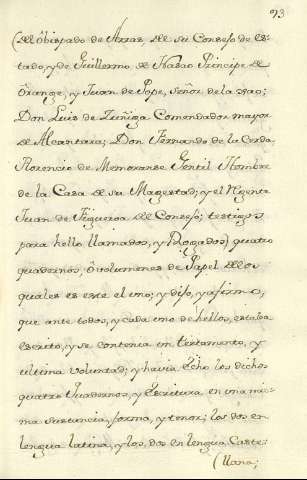 93
(del obispado de Arras del su Consejo de es-
tado, y de Guillermo de Nasao Principe de
Orange, y Juan de Pope, señor de la
Don Luis de Zuñiga Comendador mayor
de Alcantara; Don Fernando de la Cerda
Florencio de Memoranse Gentil Hombre
de la Casa de su Magestad; y el Rigente
Juan de Figueroa del Consejo; testigos
para hello llamados, y Rogados) quatro
quadernos, o volumenes de Papel delos
quales es este el uno; y dijo, y afirmo,
que ante todos, y cada uno de hellos, estaba
escrito, y se contenia un testamento, y
ultima voluntad; y havia Echo los dichos
quatro Quadernos, y Escritura en una mis-
ma sustancia, forma, y tenor; los dos en
lengua latina, y los, dos en lengua Caste-
(llana;